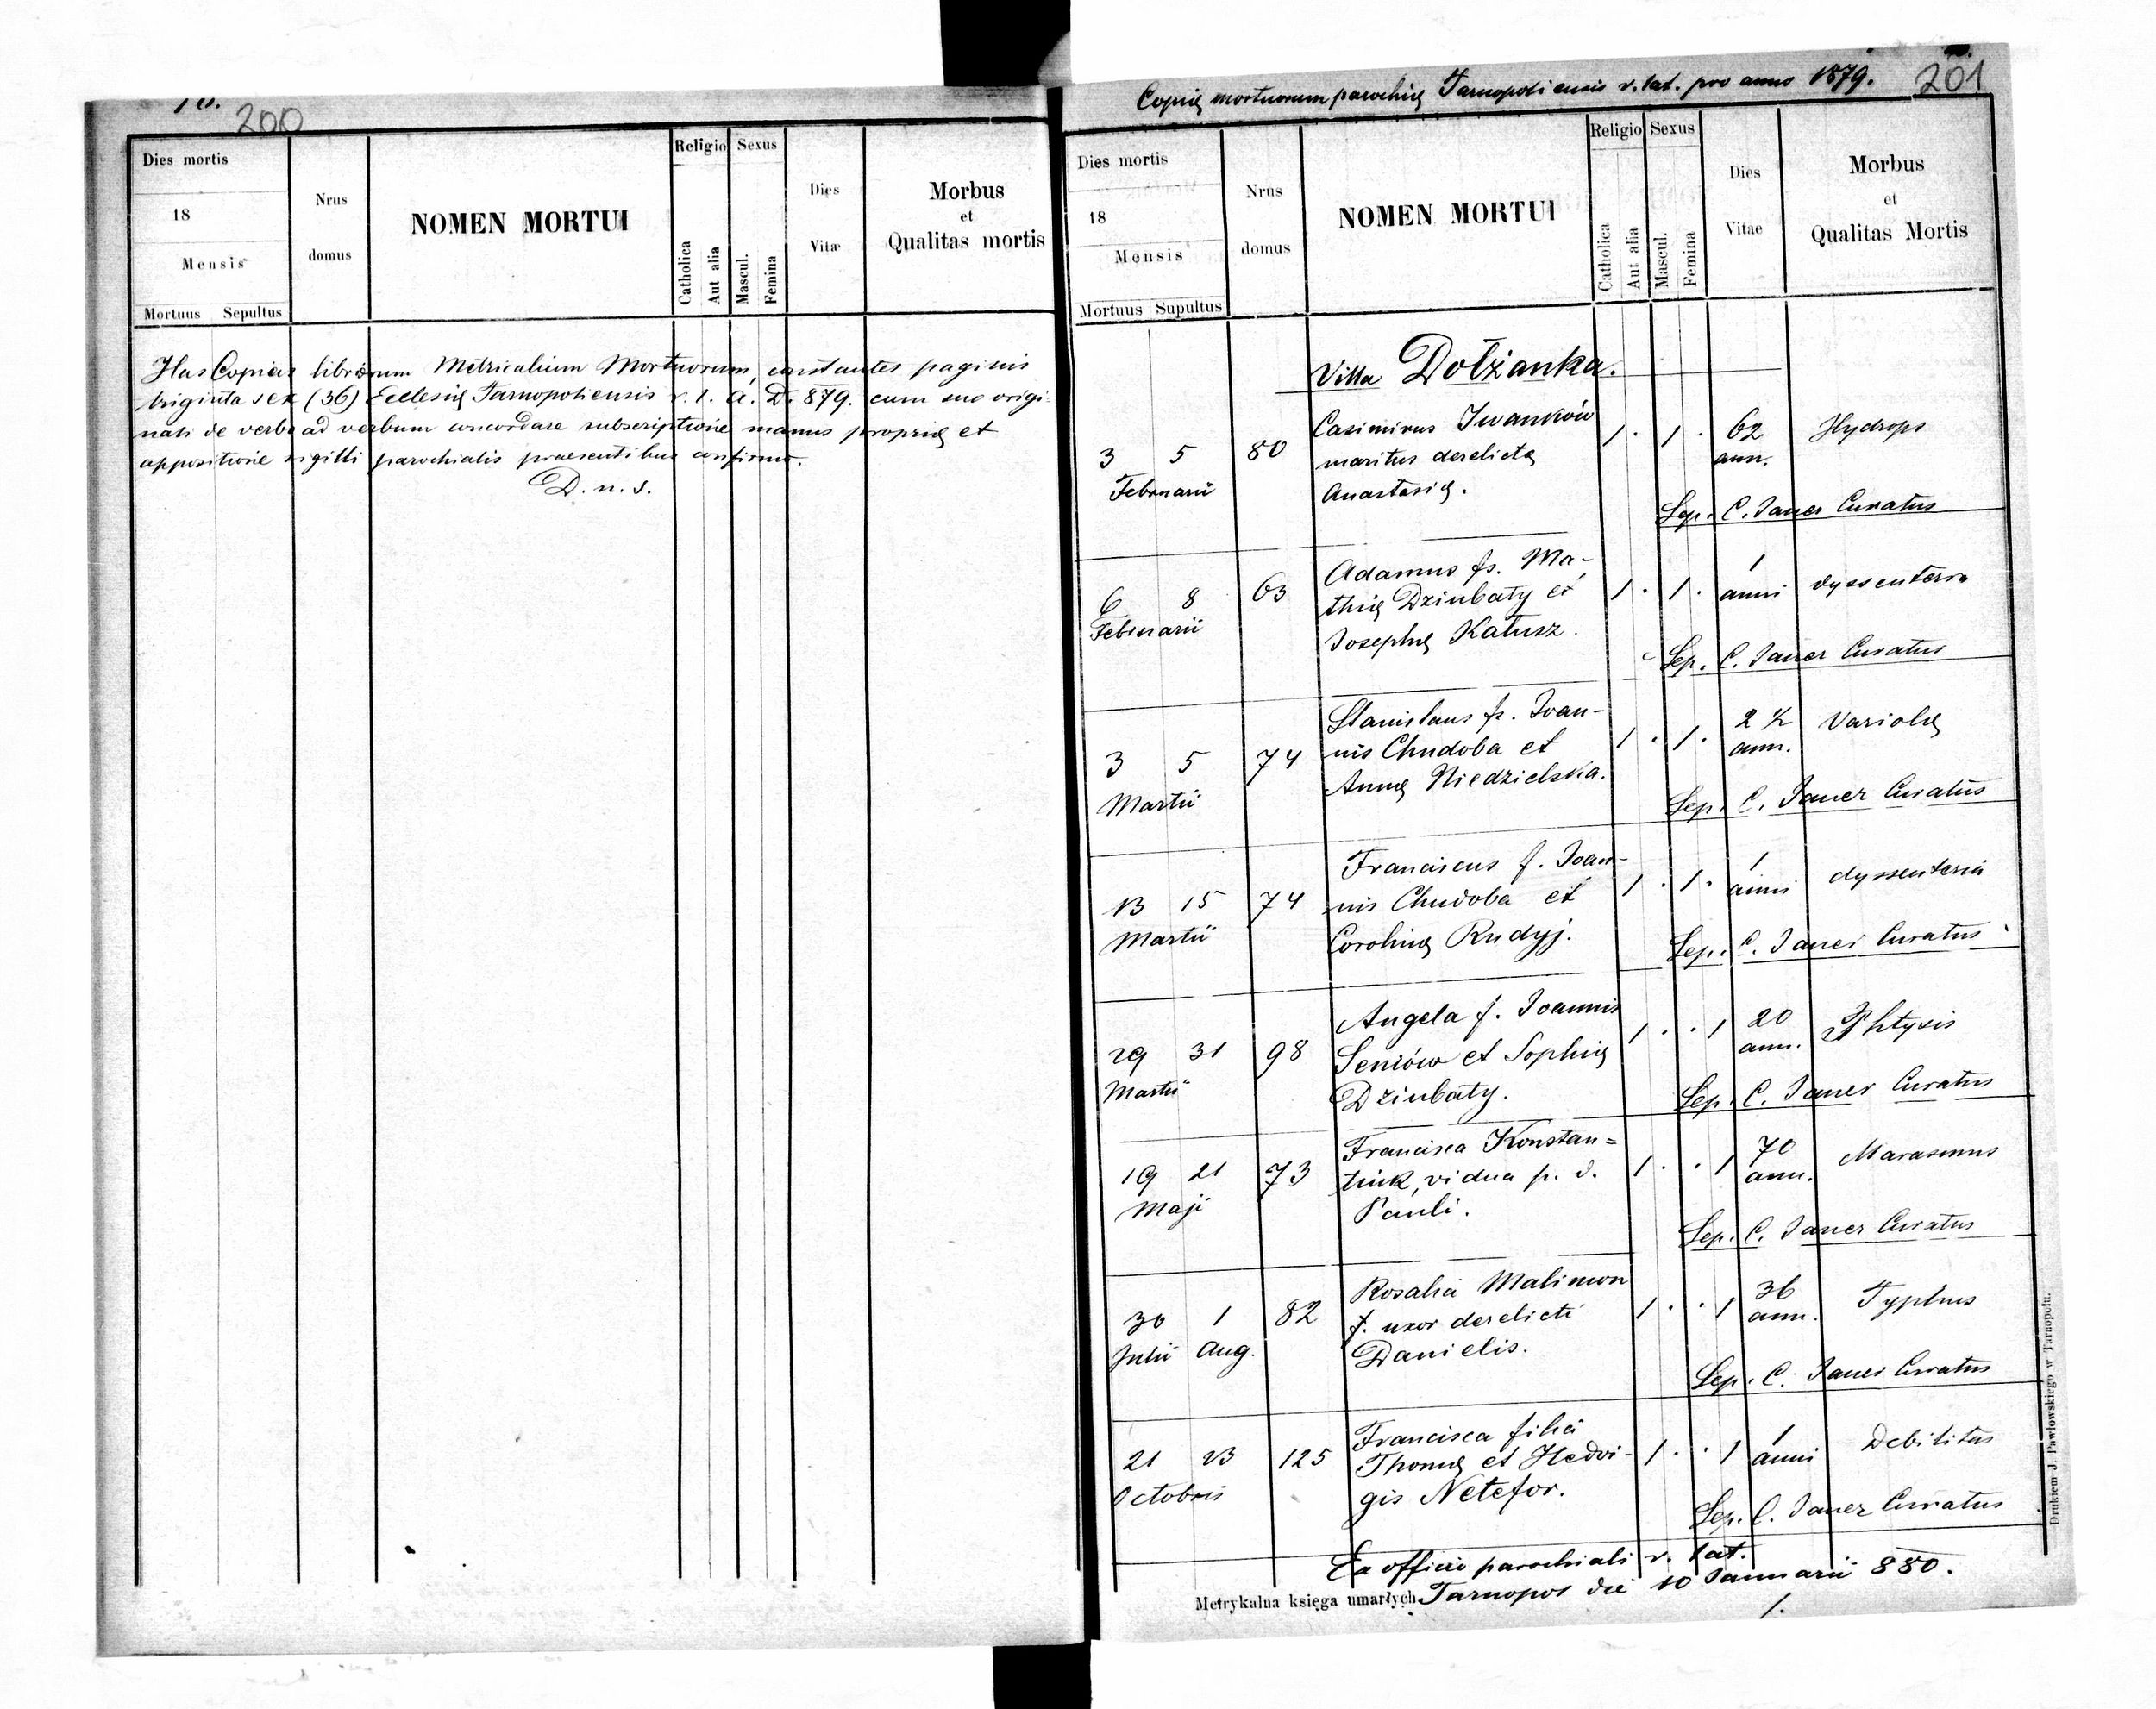 18.
200
Dies mortis
18
Mensis
Mortuus Sepultus
Nrus
domus
NOMEN MORTUI
Religio
Catholica
Aut alia
Sexus
Mascul.
Femina
Dies
Vitæ
Morbus
et
Qualitas mortis
Has Copias librorum Metricalium Mortuorum, constantes paginis
triginta sex (36) Ecclesię Tarnopoliensis r. l. A. D. 879. cum suo origi-
nali de verbo ad verbum concordare subscriptione manus proprię et
appositione sigilli parochialis praesentibus confirmo.
D. n. s.
Copię mortuorum parochię Tarnopoliensis r. lat. pro anno 1879.
201
Dies mortis
18
Mensis
Mortuus Supultus
Nrus
domus
NOMEN MORTUI
Religio
Catholica
Aut alia
Sexus
Mascul.
Femina
Dies
Vitae
Morbus
et
Qualitas Mortis
Villa Dołżanka.
3 5 80 Casimirus Iwanków 1 . 1 . 62 Hydrops
Februarii maritus derelictę ann.
Anastasię.
Sep. C. Janer Curatus
6 8 63 Adamus fs. Ma- 1 . 1 . 1 dyssenteria
Februarii thię Dziubaty et anni
Josephę Kałusz.
Sep. C. Janer Curatus
3 5 74 Stanislaus fs. Ioan- 1 . 1 . 2 ½ Variolę
Martii nis Chudoba et ann.
Annę Niedzielska.
Sep. C. Janer Curatus
13 15 74 Franciscus f. Joan- 1 . 1 . 1 dyssenteria
Martii nis Chudoba et anni
Corolinę Rudyj.
Sep. C. Janer Curatus
29 31 98 Angela f. Joannis 1 . . 1 20 Phtysis
Martii Seńków et Sophię ann.
Dziubaty.
Sep. C. Janer Curatus
19 21 73 Francisca Konstan= 1 . . 1 70 Marasmus
Maji tiuk, vidua p. d. ann.
Pauli.
Sep. C. Janer Curatus
30 1 82 Rosalia Malimon 1 . . 1 36 Typhus
Julii Aug. f. uxor derelicti ann.
Danielis.
Sep. C. Janer Curatus
21 23 125 Francisca filia 1 . . 1 1 Debilitas
Octobris Thomę et Hedvi- anni
gis Netefor.
Sep. C. Janer Curatus
Ex officio parochiali r. lat.
Tarnopol die 10 Januarii 880.
Metrykalna księga umarłych
1.
Drukiem J. Pawłowskiego w Tarnopolu.